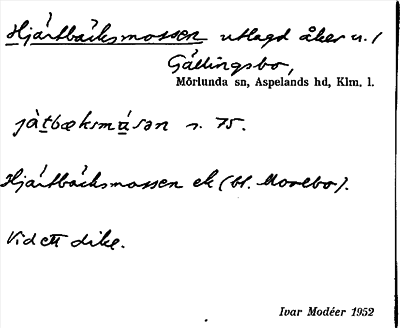 Hjärtbäcksmossen utlagd åker u. /
Gällingsbo,
Mörlunda sn, Aspelands hd, Klm. l.
jàtbæksmásən s. 75.
Hjärtbäcksmossen ek (bl. Morebo).
Vid ett dike.
Ivar Modéer 1952